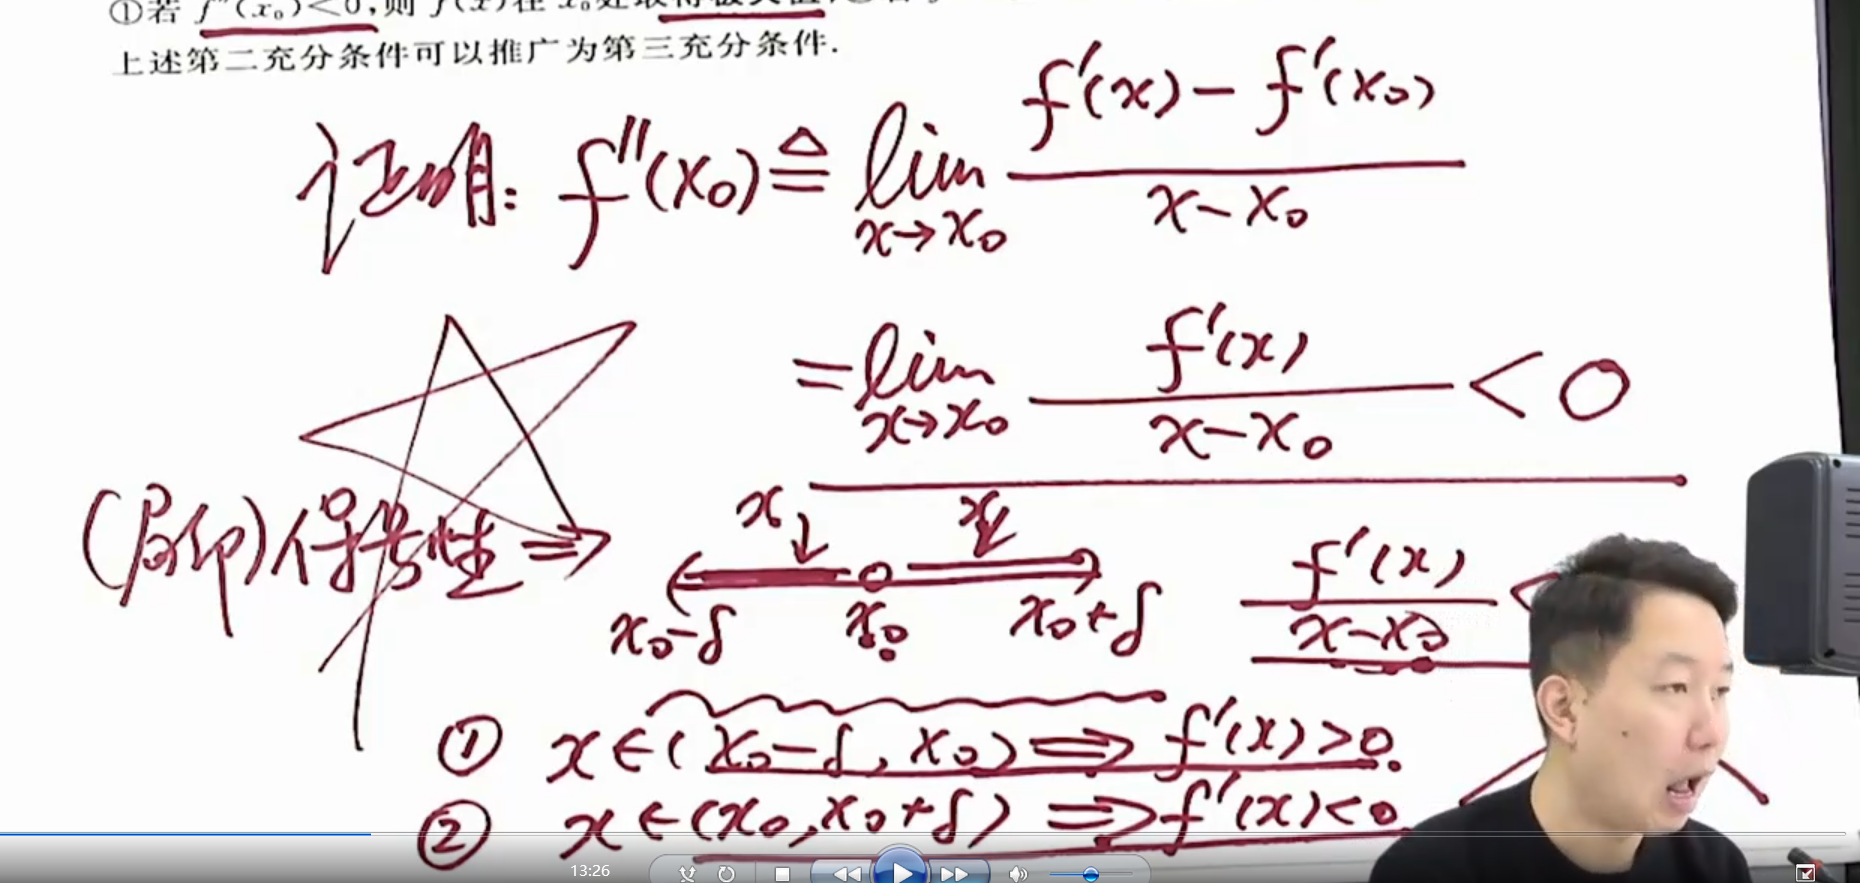 ①若 f''(x₀)<0,则 f(x)在 x₀处取得极大值
上述第二充分条件可以推广为第三充分条件.
证明: f''(x₀) ≜ lim x→x₀ (f'(x) − f'(x₀)) / (x−x₀)
= lim x→x₀ f'(x) / (x−x₀) < 0
(局部)保号性 ⇒
x x
x₀−δ x₀ x₀+δ
f'(x) / (x−x₀) <
① x∈(x₀−δ, x₀) ⇒ f'(x)>0.
② x∈(x₀, x₀+δ) ⇒ f'(x)<0
13:26